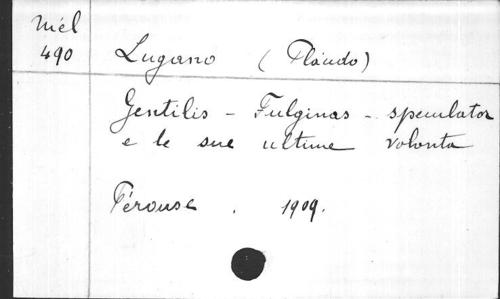 Mél
490
Lugano (Plácido)
Gentilis - Fulginas - speculator
e le sue ultime volonta
Pérouse . 1909.